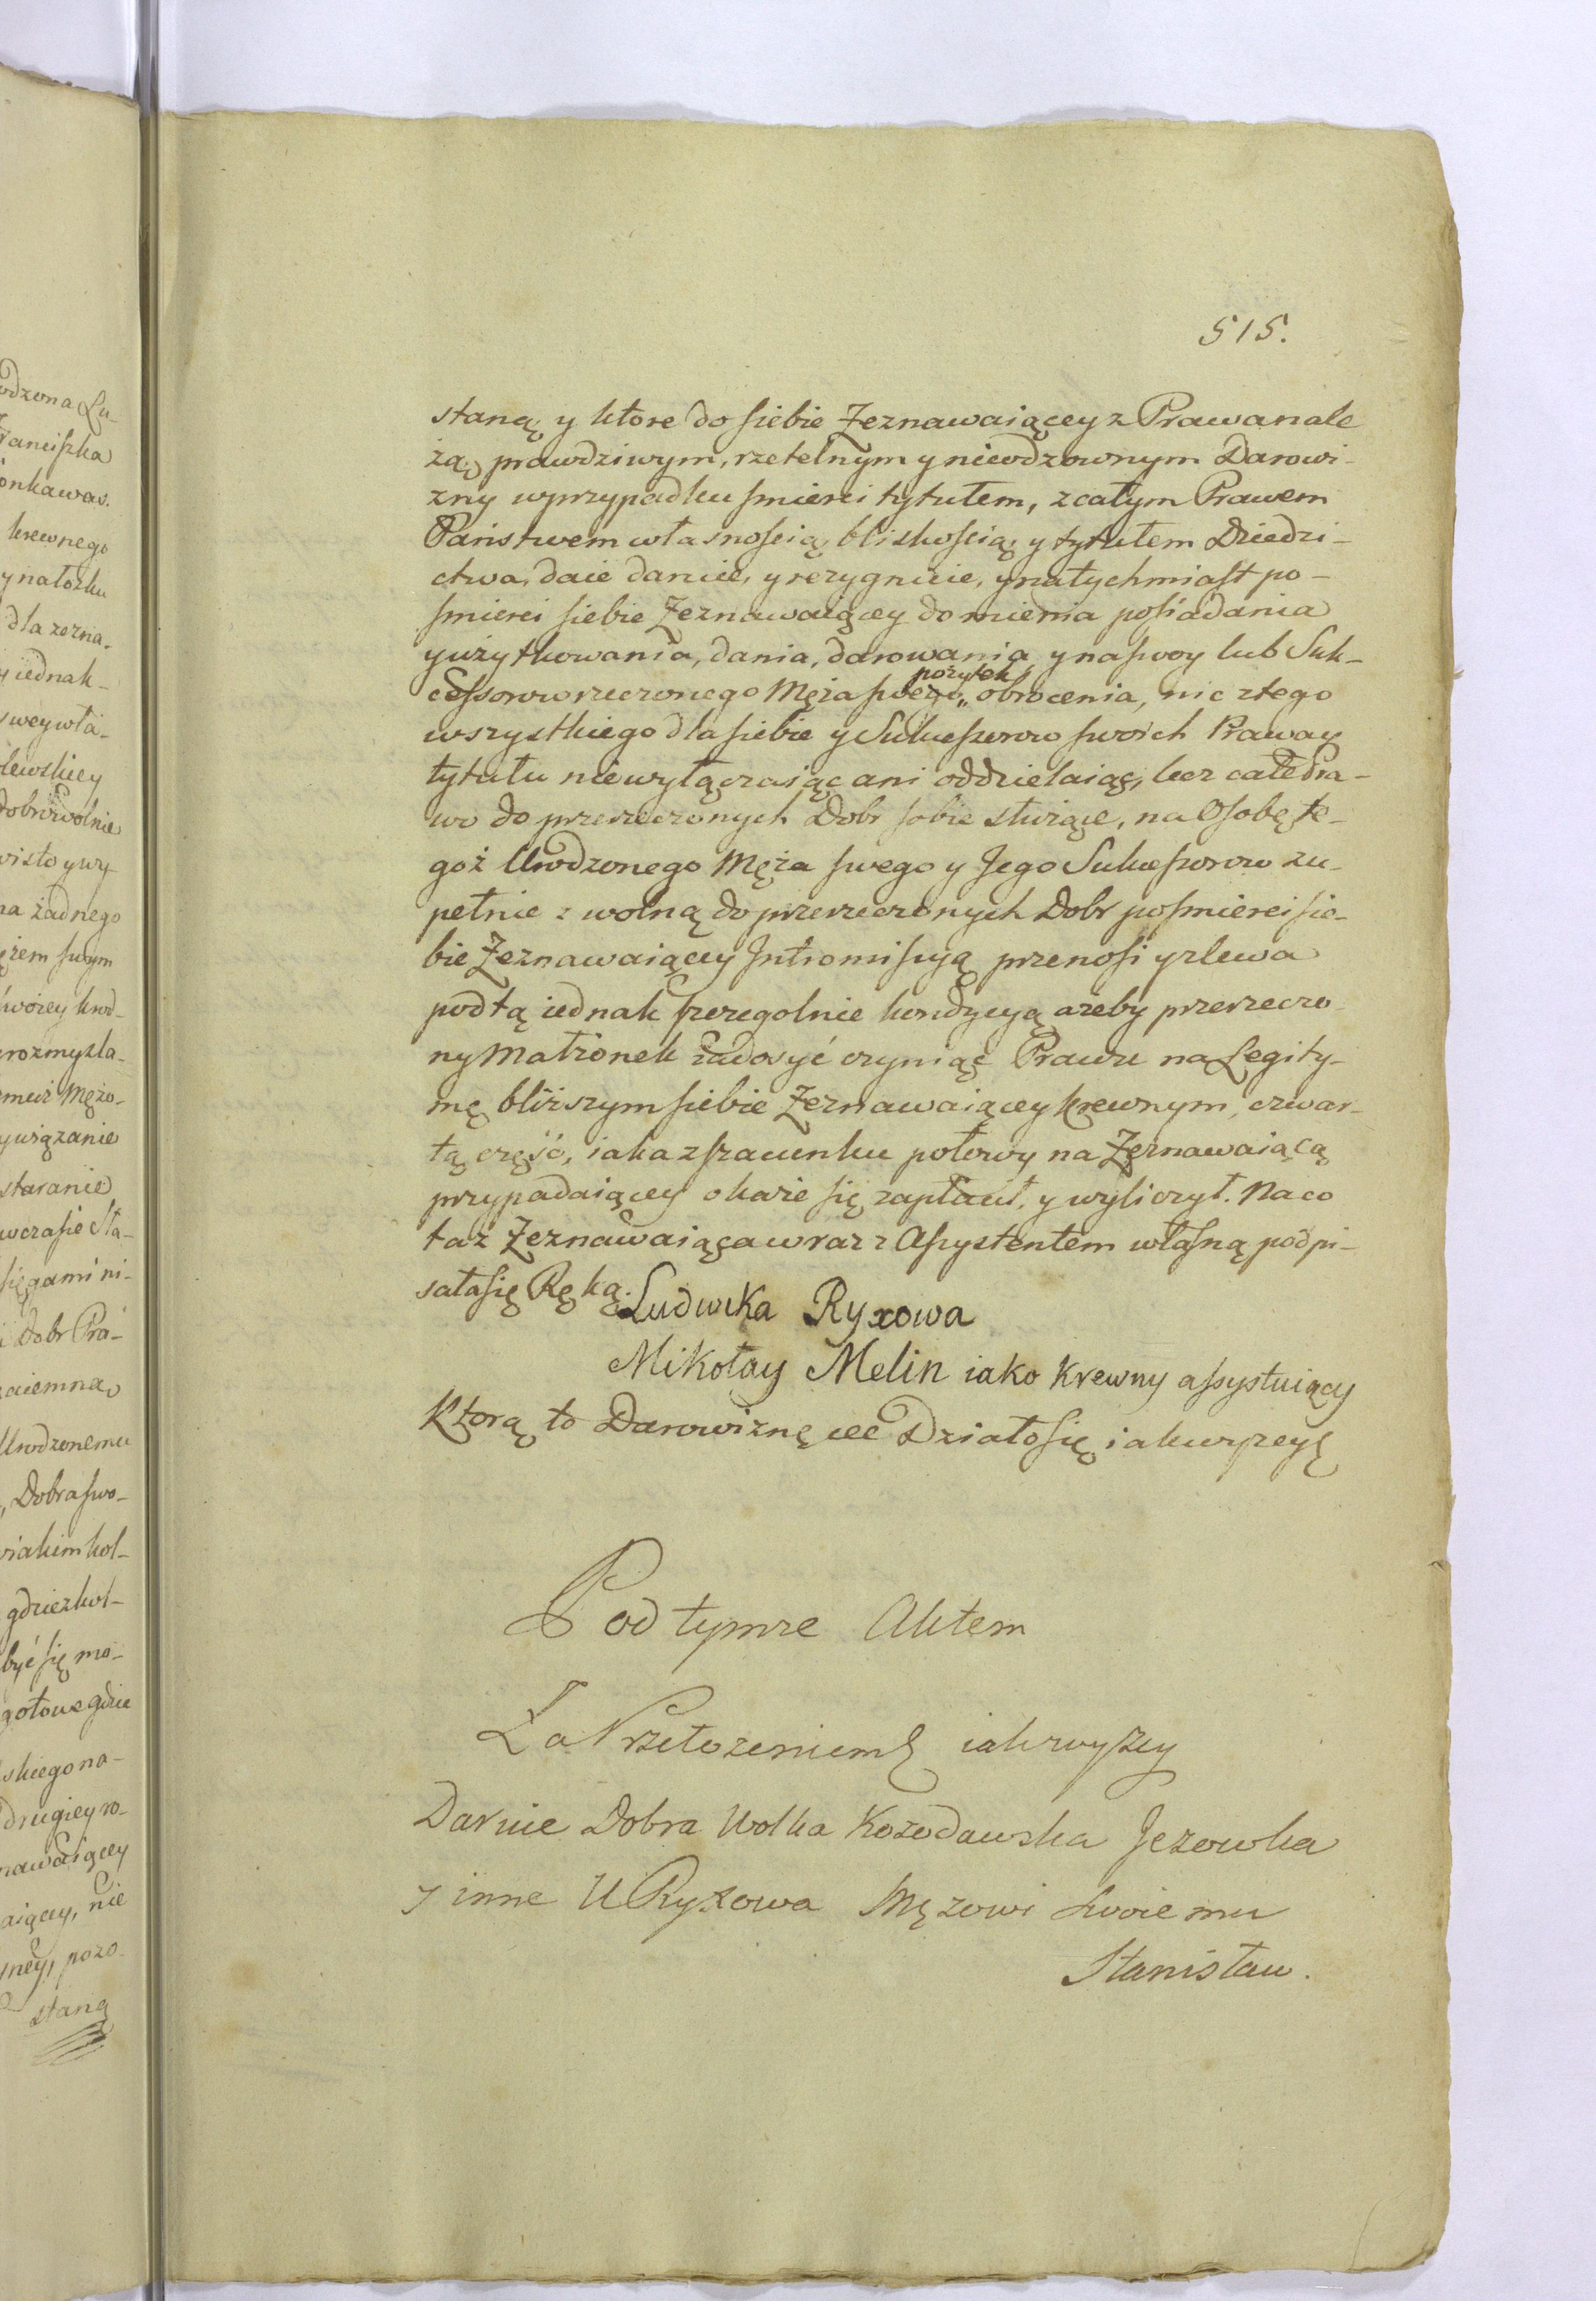 515.
staną, y ktore do siebie Zeznawaiącey z Prawa nale
żą, prawdziwym, rzetelnym y nieodzownym Darowi-
zny w przypadku smierci tytułem, z całym Prawem
Państwem własnością, bliskością, y tytułem Dziedzi-
ctwa, daie daruie, y rezygnuie, y natychmiast po-
smierci siebie Zeznawaiącey do mienia posiadania
y użytkowania, dania, darowania y na swoy lub Suk-
pożytek
cessorow rzeczonego Męża swego „ obrocenia, nic z tego
wszystkiego dla siebie y Sukcessorow swoich Prawa y
tytułu niewyłączaiąc ani oddzielaiąc, lecz całe Pra-
wo do przerzeczonych Dobr sobie służące, na Osobę te-
goż Urodzonego Męża swego y Jego Sukcessorow zu-
pełnie z wolną do przerzeczonych Dobr po smierci sie-
bie Zeznawaiącey Intromissyą przenosi y zlewa
pod tą iednak szczegolnie kondycyą ażeby przerzeczo
ny Małżonek zadosyć czyniąc Prawu na Legity-
mę bliższym siebie Zeznawaiącey krewnym, czwar-
tą część, iaka z szacunku połowy na Zeznawaiącą
przypadaiącey okaże się zapłacił, y wyliczył. Na co
taż Zeznawaiąca wraz z Assystentem własną podpi-
sała się Ręką.
Ludwika Ryxowa
Mikołay Melin iako krewny assystuiący
Ktorą to Darowiznę etc Działo się iak wyzey
Pod tymże Aktem
Za Przełożeniem iak wyszey
Daruie Dobra Wolka Kozodawska Jezowka
y inne U Ryxowa Mężowi Swoiemu
Stanisław.
odzona Lu-
ranciszka
krewnego
y nałożku
dla zezna-
y iednak-
swey wła-
lewskiey
dobrowolnie
na żadnego
ężem swym
rozmyśla-
muż Mężo-
ywiązanie
staranie
w czasie sła-
i Dobr Pra-
Urodzonemu
Dobra swo-
iakimkol-
gdzieżkol-
być się mo-
gotowe gdzie
skiego na-
drugiey ro-
nawaiącey
aiącey, nie
pozo-
staną